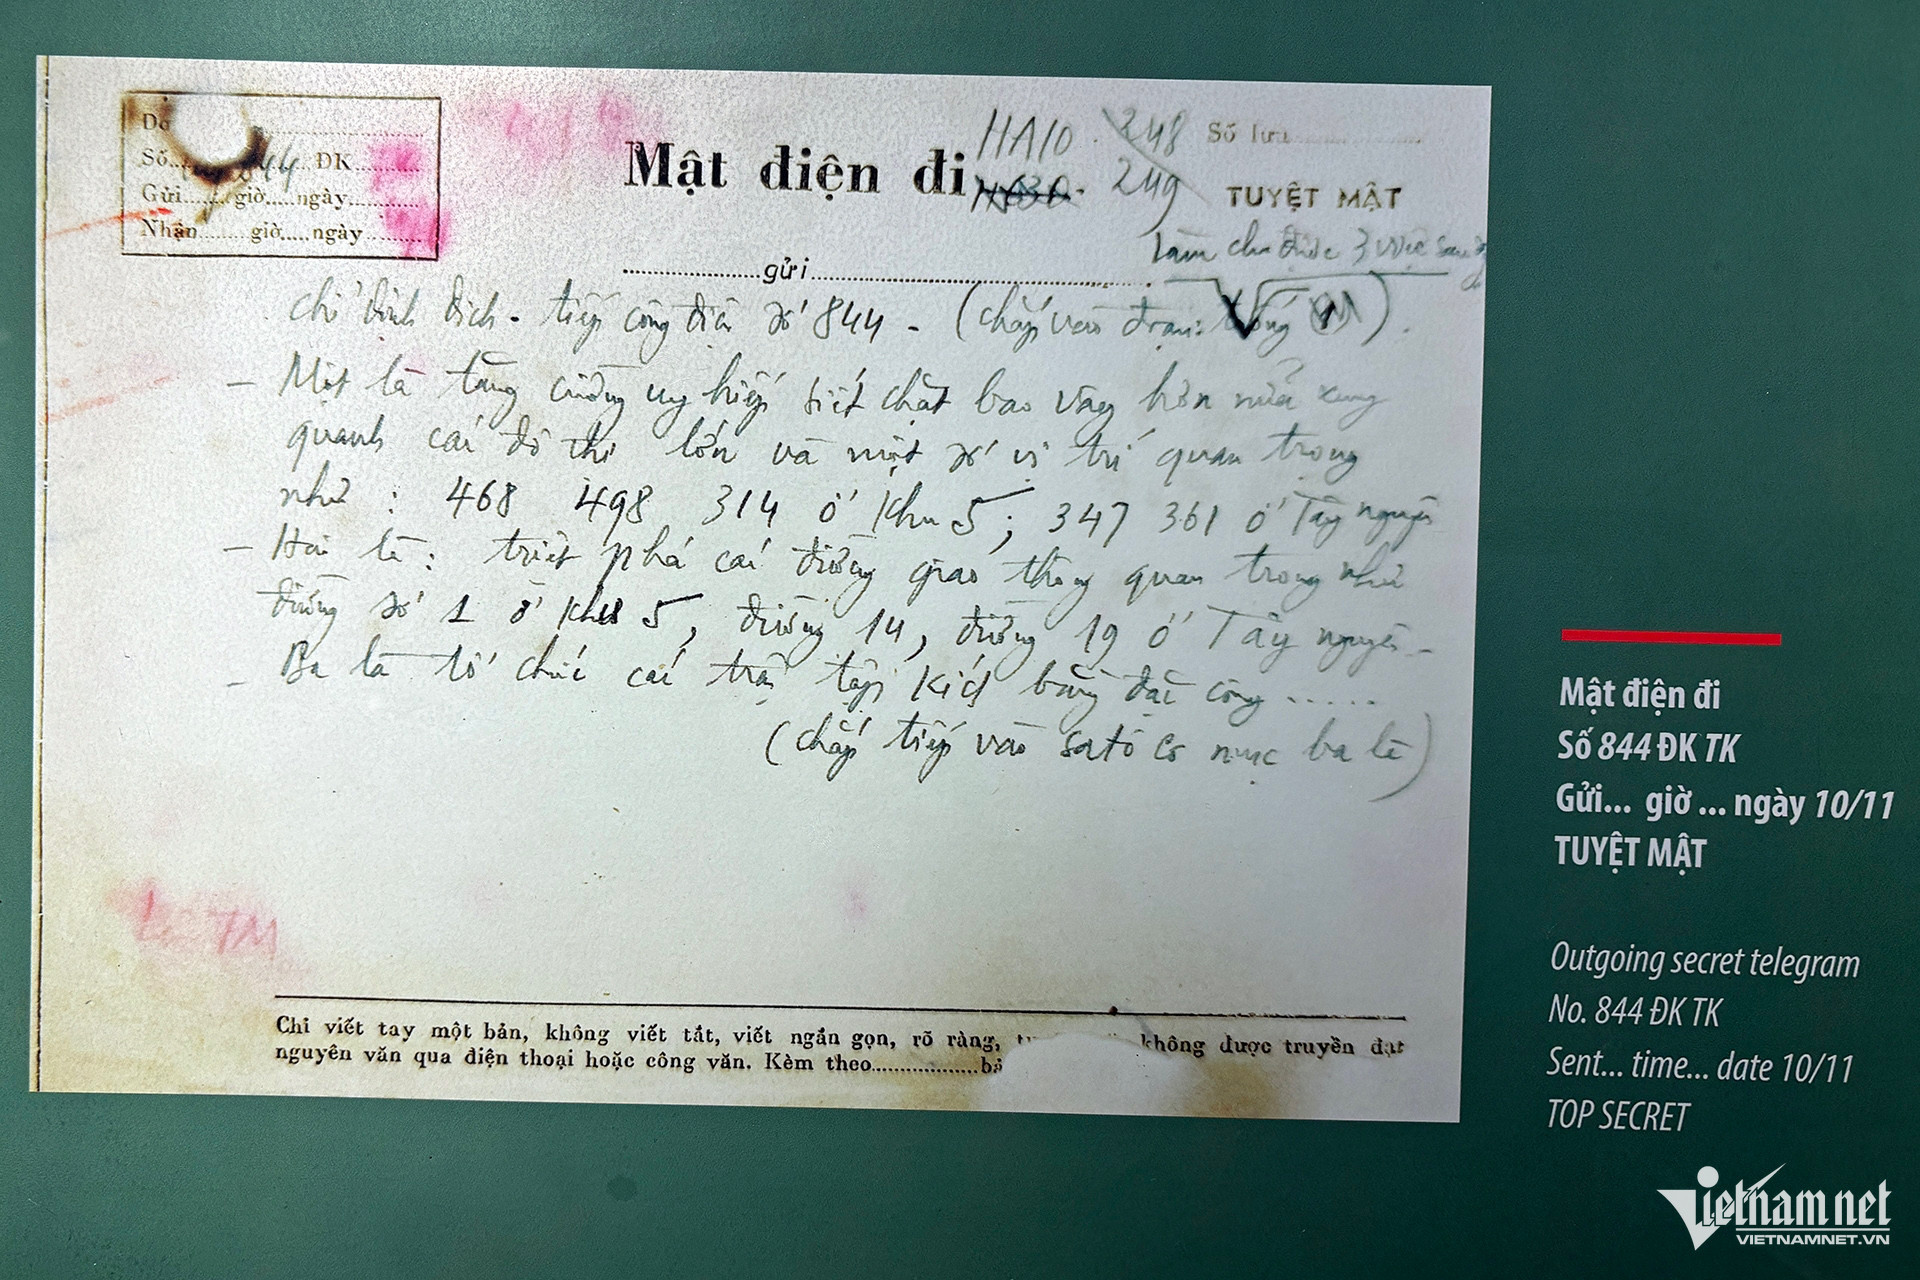 Số... 844 ĐK
Gửi......giờ.....ngày
Nhận........giờ.....ngày
Mật điện đi
HA10
248
249
Số lưu
TUYỆT MẬT
làm cho được 3 việc sau đây
gửi
chỉ định dịch - tiếp công điện số 844 - (chắp vào đoạn trống
- Một là tăng cường uy hiếp siết chặt bao vây hơn nữa xung
quanh các đô thị lớn và một số vị trí quan trọng
như : 468 498 314 ở Khu 5 ; 347 361 ở Tây nguyên
- Hai là : triệt phá các đường giao thông quan trọng như
đường số 1 ở Khu 5, đường 14, đường 19 ở Tây nguyên -
- Ba là tổ chức các trận tập kích bằng đặc công ......
(chắp tiếp vào mục ba là)
Chỉ viết tay một bản, không viết tắt, viết ngắn gọn, rõ ràng, không được truyền đạt
nguyên văn qua điện thoại hoặc công văn. Kèm theo
Mật điện đi
Số 844 ĐK TK
Gửi... giờ ... ngày 10/11
TUYỆT MẬT
Outgoing secret telegram
No. 844 ĐK TK
Sent... time... date 10/11
TOP SECRET
Vietnamnet
VIETNAMNET.VN